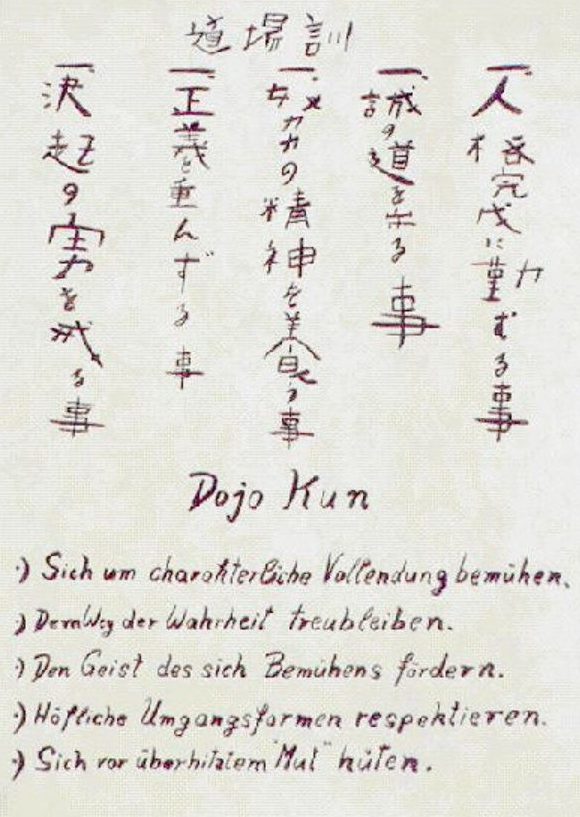 道場訓
一 人格完成に勤むる事
一 誠の道を守る事
一 努力の精神を養う事
一 正義を重んずる事
一 決起の力を戒る事
Dojo Kun
·) Sich um charakterliche Vollendung bemühen.
·) Dem Weg der Wahrheit treubleiben.
·) Den Geist des sich Bemühens fördern.
·) Höfliche Umgangsformen respektieren.
·) Sich vor überhitztem "Mut" hüten.